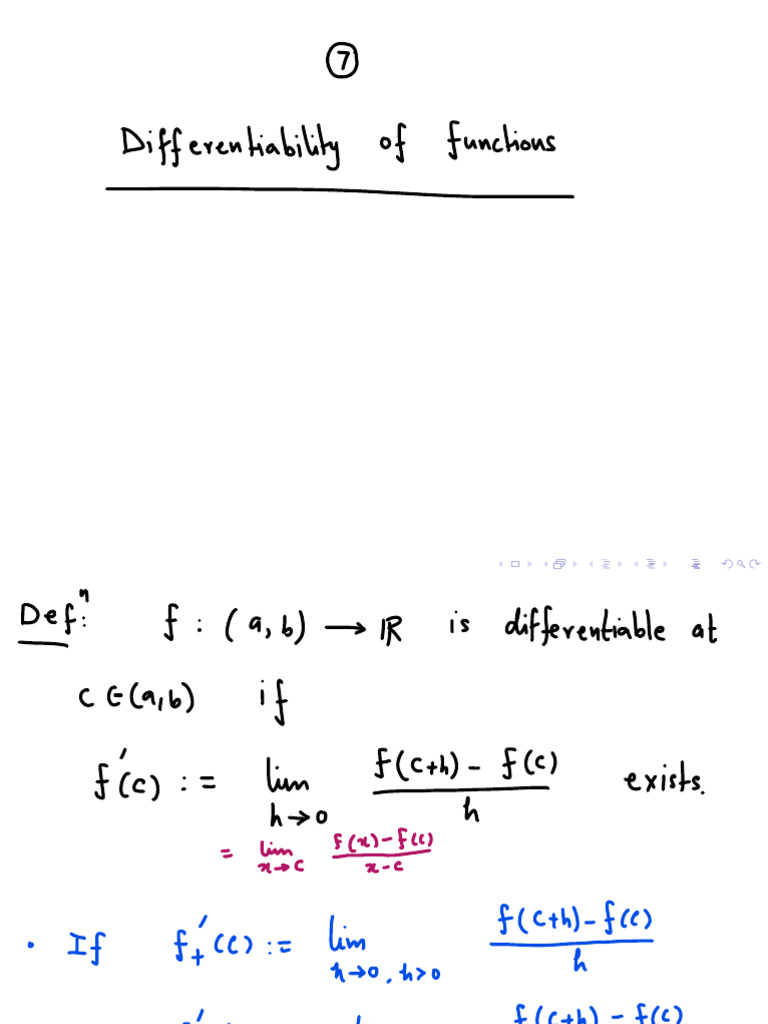 7
Differentiability of functions
Defⁿ: f : (a, b) → ℝ is differentiable at
c ∈ (a, b) if
f'(c) := lim h→0 f(c+h) - f(c) / h exists.
= lim x→c f(x) - f(c) / x - c
• If f'₊(c) := lim h→0, h>0 f(c+h) - f(c) / h
f(c+h) - f(c)